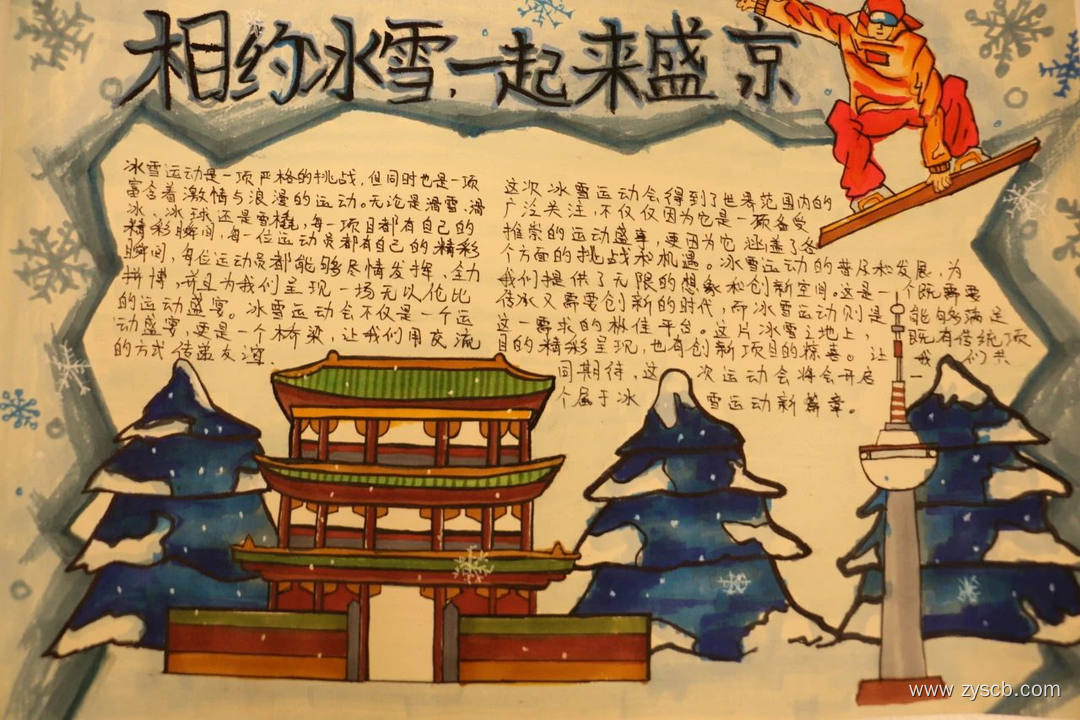 相约冰雪,一起来盛京
冰雪运动是一项严格的挑战,但同时也是一项
富含着激情与浪漫的运动。无论是滑雪、滑
冰、冰球还是雪橇,每一项目都有自己的
精彩瞬间,每一位运动员都有自己的精彩
瞬间,每位运动员都能够尽情发挥,全力
拼搏,并且为我们呈现一场无以伦比
的运动盛宴。冰雪运动会不仅是一个运
动盛宴,更是一个桥梁,让我们用交流
的方式传递友谊
这次冰雪运动会,得到了世界范围内的
广泛关注,不仅仅因为它是一项备受
推崇的运动盛事,更因为它涵盖了各
个方面的挑战和机遇。冰雪运动的普及和发展,为
我们提供了无限的想象和创新空间。这是一个既需要
传承又需要创新的时代,而冰雪运动则是能够满足
这一需求的极佳平台。这片冰雪之地上,既有传统项
目的精彩呈现,也有创新项目的惊喜。让我们共
同期待,这一次运动会将会开启
个属于冰雪运动新篇章。
www.zyscb.com